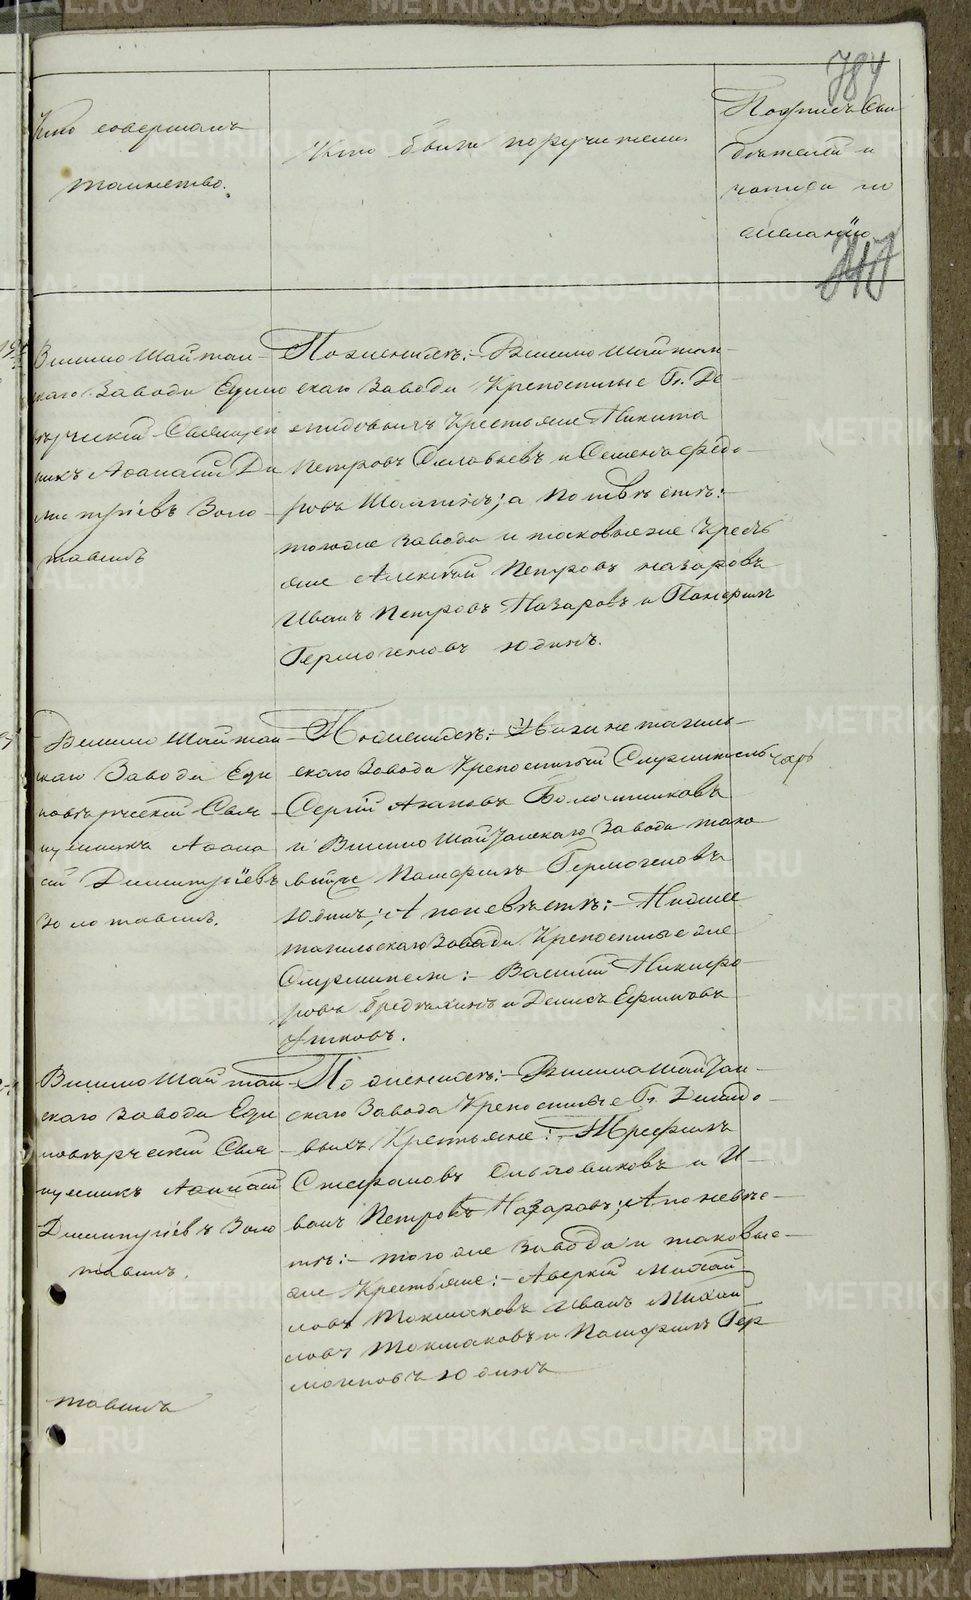 784
Кто совершалъ
таинство.
Кто были поручители.
Подпись сви
дѣтелей и
записи по
желанію
Висимо Шайтан-
скаго Завода Едино
вѣрческій Священ
никъ Аѳанасій Ди
митріевъ Золо-
тавинъ
По женихѣ:- Висимо Шайтан-
скаго Завода Крепостные Гг. Де-
мидовыхъ Крестьяне Никита
Петровъ Соловьевъ и Семенъ Федо-
ровъ ; а по невѣстѣ:-
тогоже завода и таковыеже Кресть
яне Алексѣй Петровъ Назаровъ
Иванъ Петровъ Назаровъ и Памфилъ
Гермогеновъ Юдинъ.
Висимо Шайтан
скаго Завода Еди
новѣрческій Свя-
щенникъ Аѳана
сій Димитріевъ
Золотавинъ.
По женихѣ:- Нижнетагиль-
скаго Завода Крепостный Служитель
Сергій Агаповъ
и Висимо Шайтанскаго Завода тако
выйже Памфилъ Гермогеновъ
Юдинъ; А по невѣстѣ:- Нижне
тагильскаго Завода Крепостные же
Служители:- Василій Никифо-
ровъ и Денисъ Ефимовъ
Утковъ.
Висимо Шайтан
скаго Завода Еди
новѣрческій Свя-
щенникъ Аѳанасій
Димитріевъ Золо
тавинъ.
тавинъ
По женихѣ:- Висимо Шайтан-
скаго Завода Крепостные Гг. Демидо-
выхъ Крестьяне:- Трефилъ
Стефановъ и И-
ванъ Петровъ Назаровъ; А по невѣс-
тѣ:- тогоже Завода и таковые-
же Крестьяне:- Аверкій Михай
ловъ Токмаковъ Иванъ Михай
ловъ Токмаковъ и Памфилъ Гер
могеновъ Юдинъ
METRIKI.GASO-URAL.RU